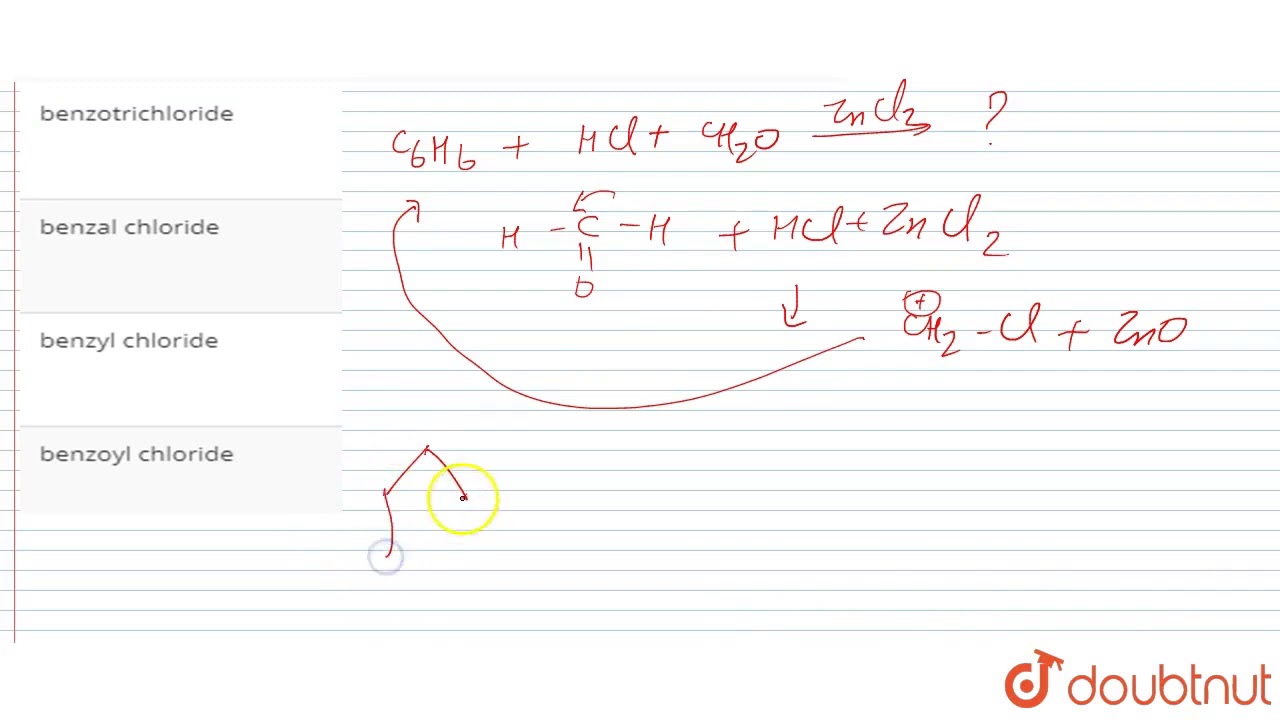 benzotrichloride
benzal chloride
benzyl chloride
benzoyl chloride
C6H6 + HCl + CH2O ZnCl2 ?
H - C - H + HCl + ZnCl2
O
+
CH2 - Cl + ZnO
doubtnut